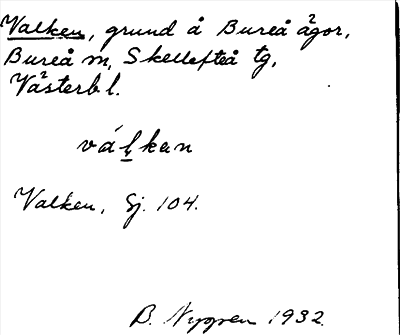 Valken, grund å Bureå ägor,
Bureå m, Skellefteå tg,
Västerb l.
válkan
Valken, Sj. 104.
B. Nygren 1932